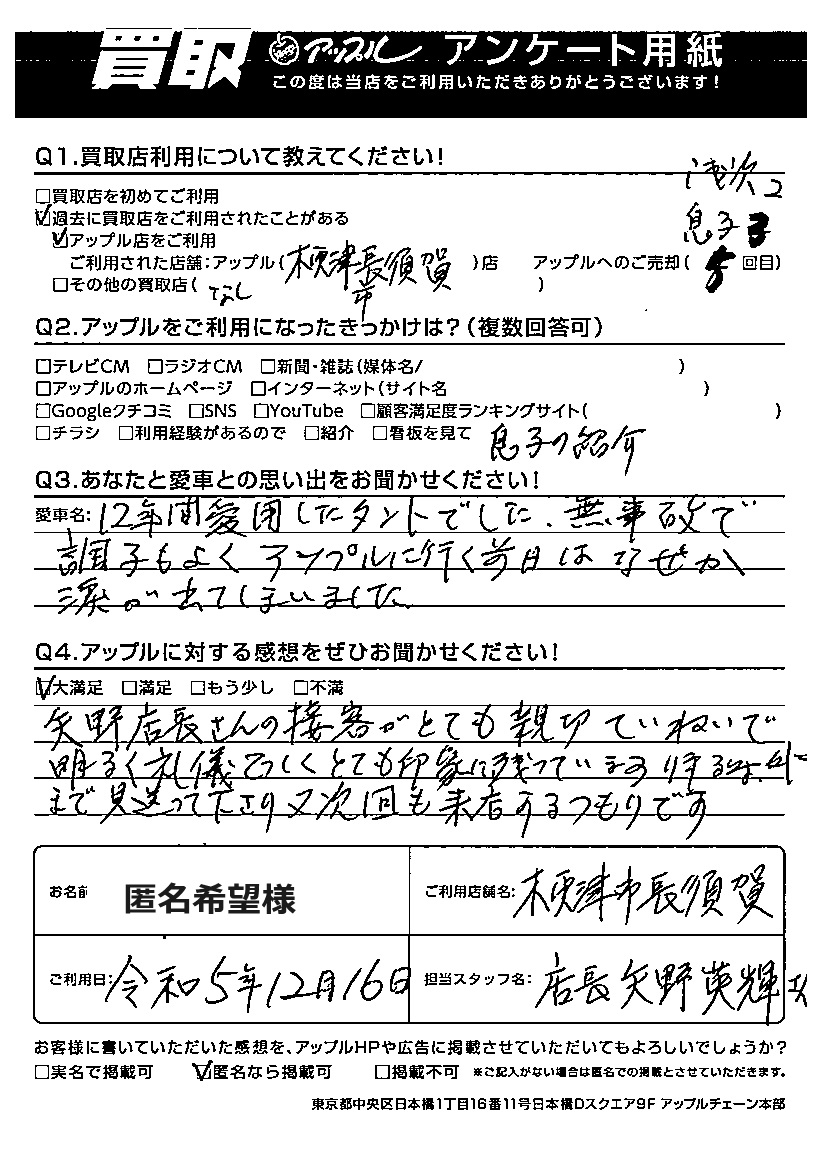 買取 アップル アンケート用紙
この度は当店をご利用いただきありがとうございます!
Q1.買取店利用について教えてください!
□買取店を初めてご利用
☑過去に買取店をご利用されたことがある
息子
☑アップル店をご利用
ご利用された店舗:アップル(木更津市長須賀)店 アップルへのご売却(5回目)
□その他の買取店(なし)
Q2.アップルをご利用になったきっかけは?(複数回答可)
□テレビCM □ラジオCM □新聞・雑誌(媒体名/ )
□アップルのホームページ □インターネット(サイト名 )
□Googleクチコミ □SNS □YouTube □顧客満足度ランキングサイト( )
□チラシ □利用経験があるので □紹介 □看板を見て 息子の紹介
Q3.あなたと愛車との思い出をお聞かせください!
愛車名:12年間愛用したタントでした、無事故で
調子もよくアップルに行く前日はなぜか
涙が出てしまいました
Q4.アップルに対する感想をぜひお聞かせください!
☑大満足 □満足 □もう少し □不満
矢野店長さんの接客がとても親切ていねいで
明るく礼儀正しくとても印象に残っています
まで見送って下さり又次回も来店するつもりです
お名前 匿名希望様
ご利用店舗名:木更津市長須賀
ご利用日:令和5年12月16日
担当スタッフ名:店長矢野英輝
お客様に書いていただいた感想を、アップルHPや広告に掲載させていただいてもよろしいでしょうか?
□実名で掲載可 ☑匿名なら掲載可 □掲載不可 ※ご記入がない場合は匿名での掲載とさせていただきます。
東京都中央区日本橋1丁目16番11号日本橋Dスクエア9F アップルチェーン本部